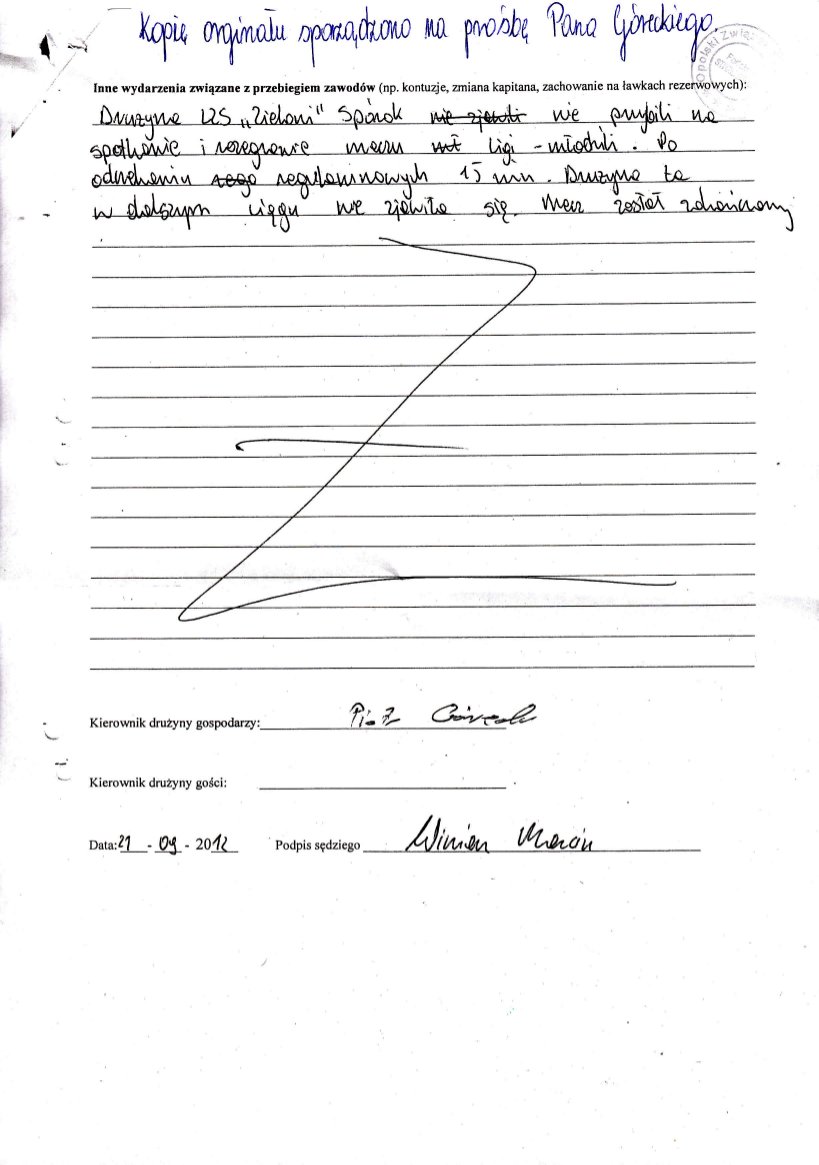 Kopię orginału sporządzono na prośbę Pana Góreckiego.
Opolski Związ
Inne wydarzenia związane z przebiegiem zawodów (np. kontuzje, zmiana kapitana, zachowanie na ławkach rezerwowych):
Drużyna LZS „Zieloni" Spórok nie zjawili nie przybili na
spotkanie i rozegranie meczu ligi - młodzili. Po
odczekaniu tego regulaminowych 15 min. Drużyna ta
w dalszym ciągu nie zjawiła się. Mecz został zakończony
Kierownik drużyny gospodarzy: Piotr Górecki
Kierownik drużyny gości:
Data: 21 - 09 - 2012 Podpis sędziego Marcin